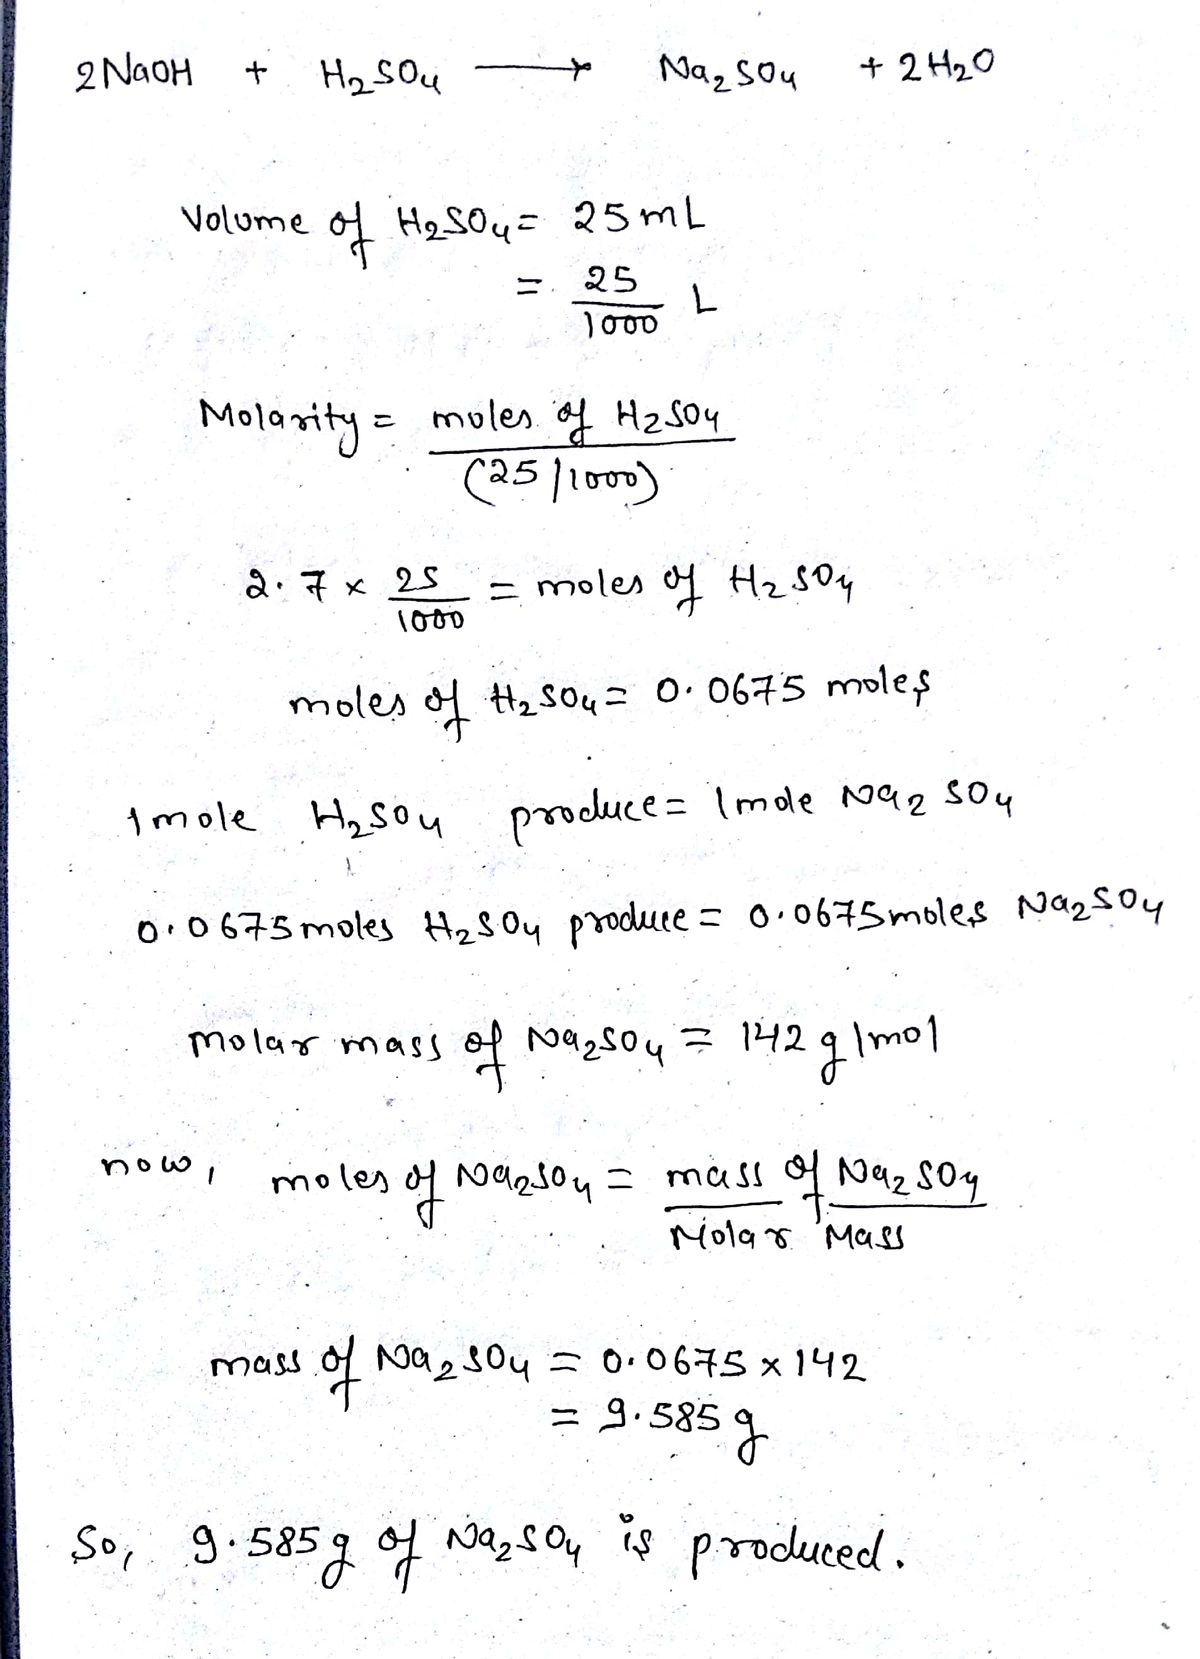 2NaOH + H₂SO₄ ⟶ Na₂SO₄ + 2H₂O
Volume of H₂SO₄ = 25 mL
= 25/1000 L
Molarity = moles of H₂SO₄ / (25/1000)
2.7 × 25/1000 = moles of H₂SO₄
moles of H₂SO₄ = 0.0675 moles
1 mole H₂SO₄ produce = 1 mole Na₂SO₄
0.0675 moles H₂SO₄ produce = 0.0675 moles Na₂SO₄
molar mass of Na₂SO₄ = 142 g/mol
now, moles of Na₂SO₄ = mass of Na₂SO₄ / Molar Mass
mass of Na₂SO₄ = 0.0675 × 142
= 9.585 g
So, 9.585 g of Na₂SO₄ is produced.